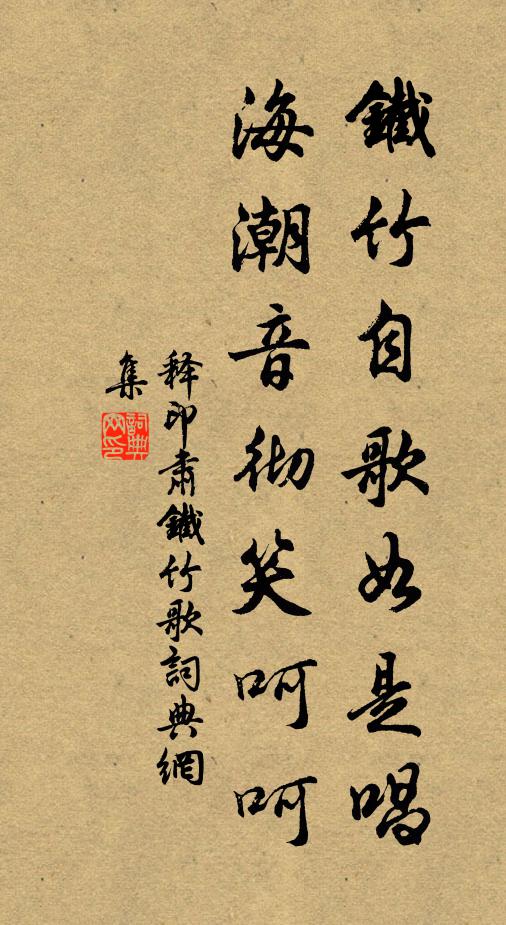 鐵竹自歌如是唱
海潮音彻笑呵呵
释印肃鐵竹歌詞典網
集
詞典網印